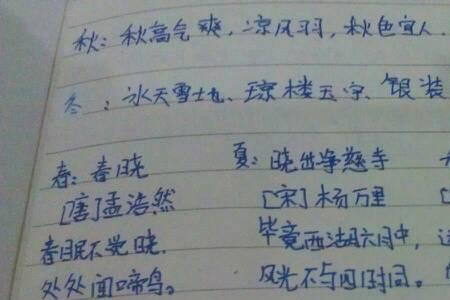 秋：秋高气爽，凉风习习，秋色宜人．
冬：冰天雪地、琼楼玉宇、银装
春：春晓
[唐]孟浩然
春眠不觉晓．
处处闻啼鸟。
夏：晓出净慈寺
[宋]杨万里
毕竟西湖六月中，
风光不与四时同。